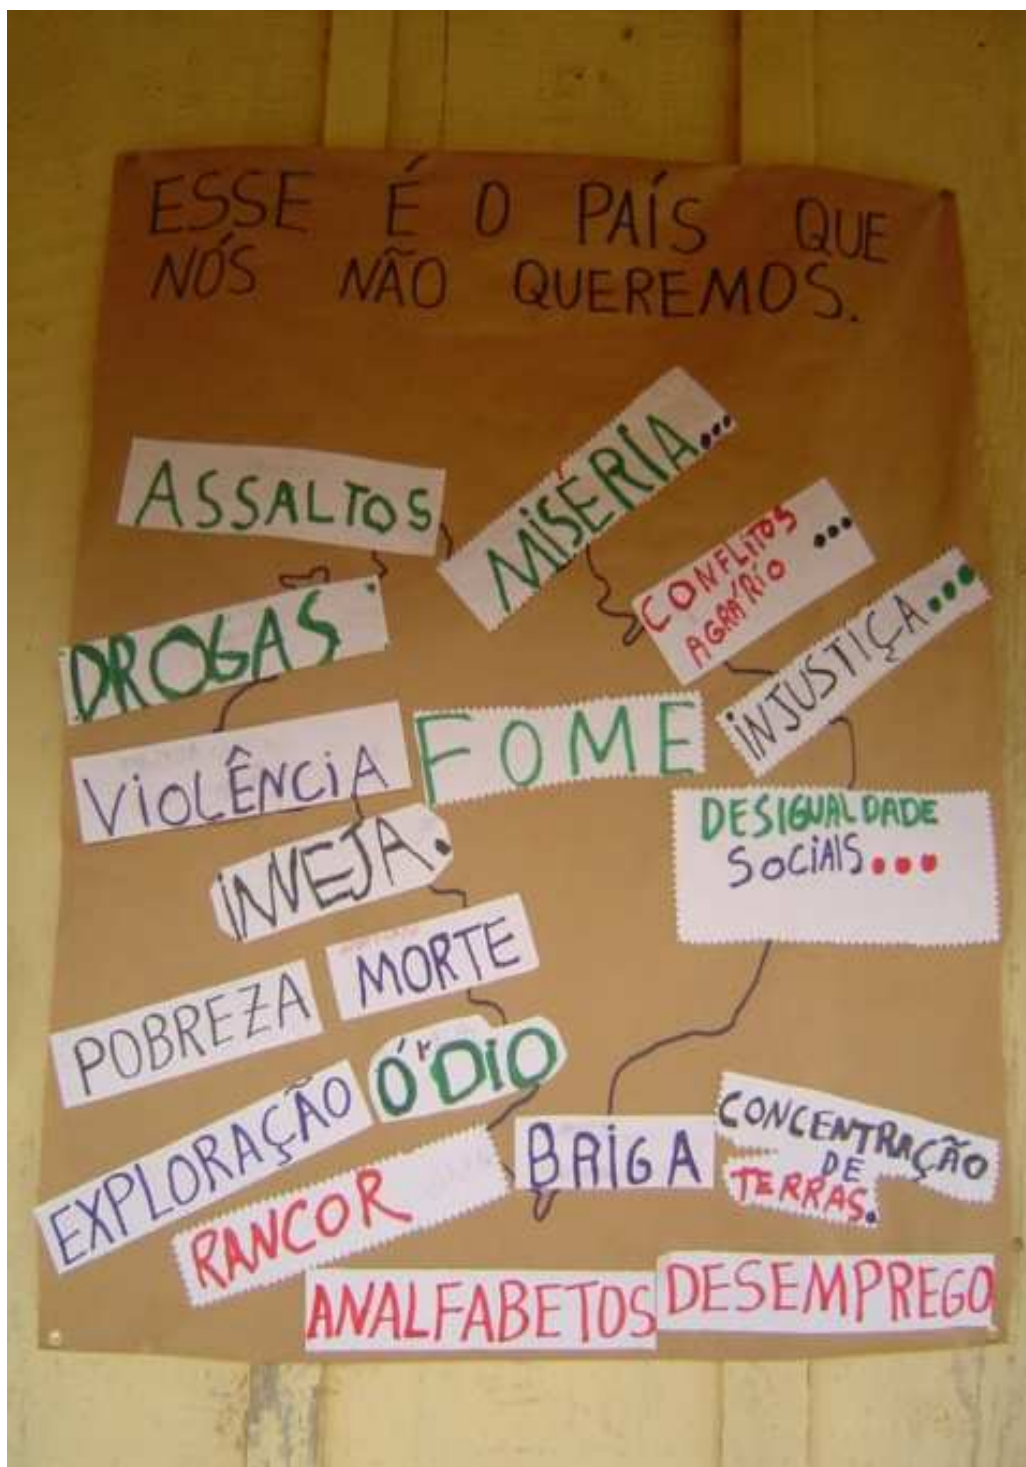 ESSE É O PAÍS QUE
NÓS NÃO QUEREMOS.
ASSALTOS
MISÉRIA...
CONFLITOS ...
AGRÁRIO
DROGAS
INJUSTIÇA...
VIOLÊNCIA
FOME
DESIGUALDADE
SOCIAIS...
INVEJA.
MORTE
POBREZA
ÓDIO
EXPLORAÇÃO
BRIGA
CONCENTRAÇÃO
DE
TERRAS.
RANCOR
ANALFABETOS
DESEMPREGO